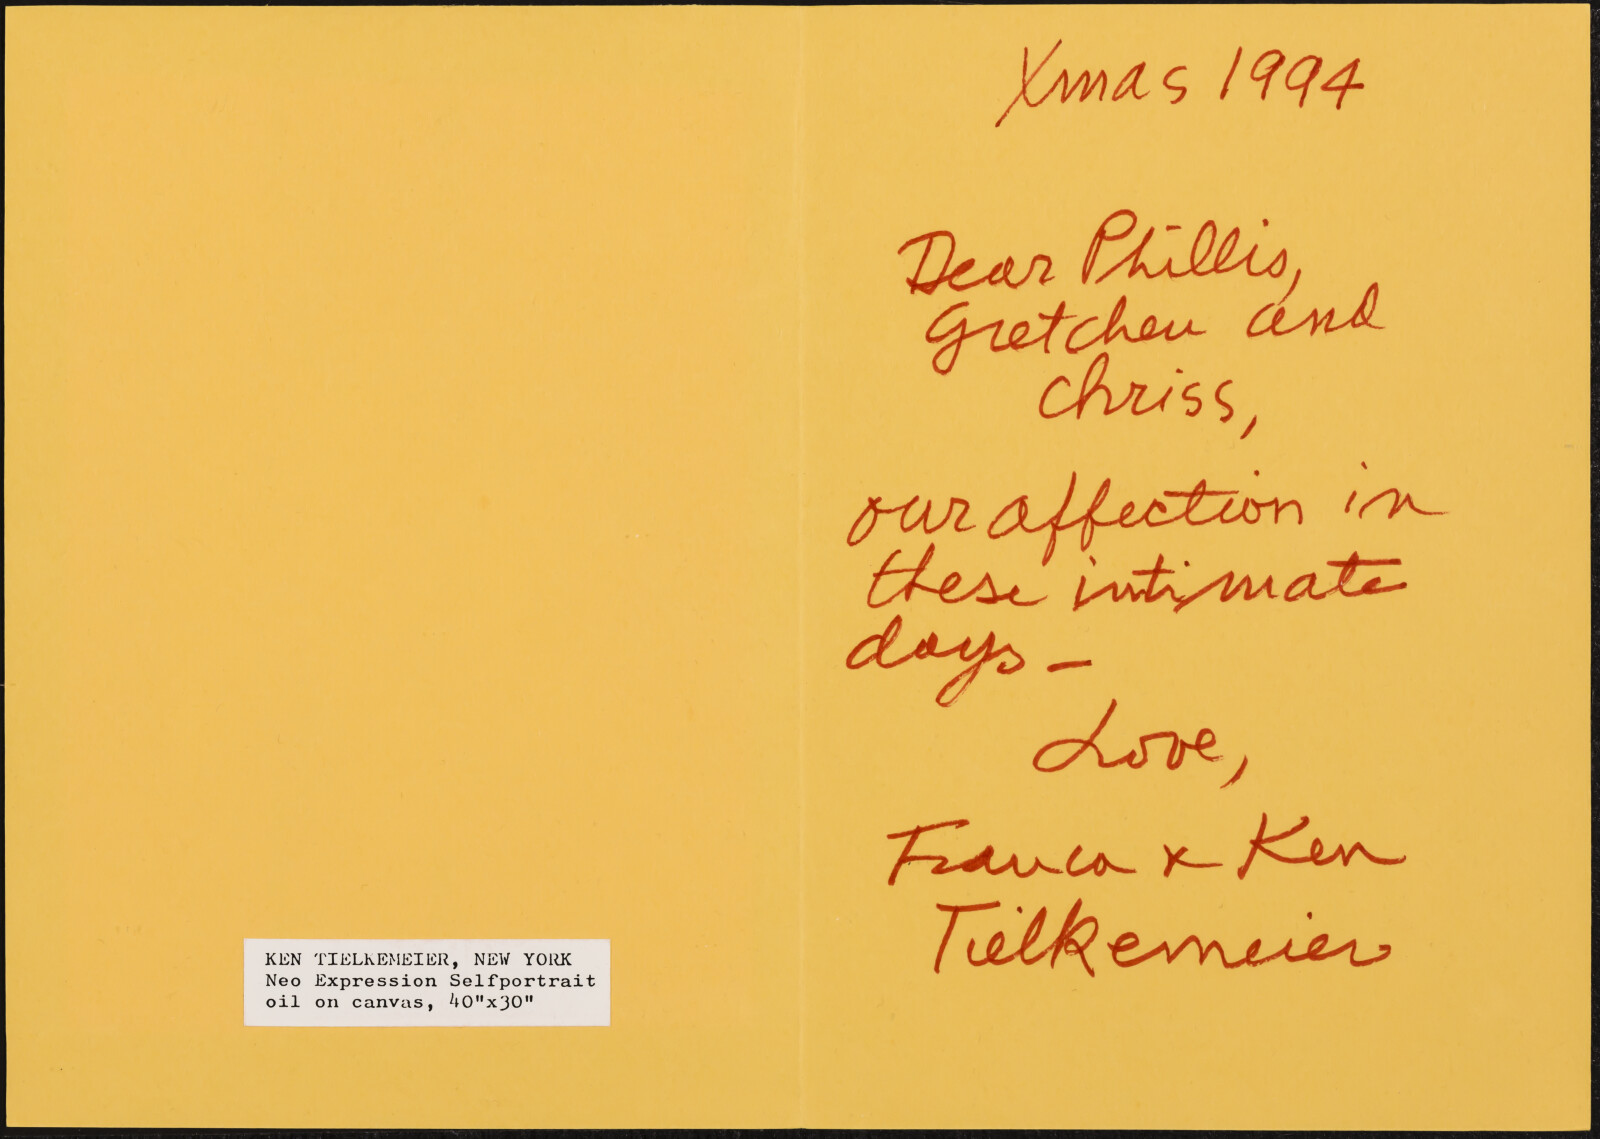 KEN TIELKEMEIER, NEW YORK
Neo Expression Selfportrait
oil on canvas, 40"x30"
Xmas 1994
Dear Phillis,
Gretchen and
Chriss,
our affection in
these intimate
days –
Love,
Franca & Ken
Tielkemeier